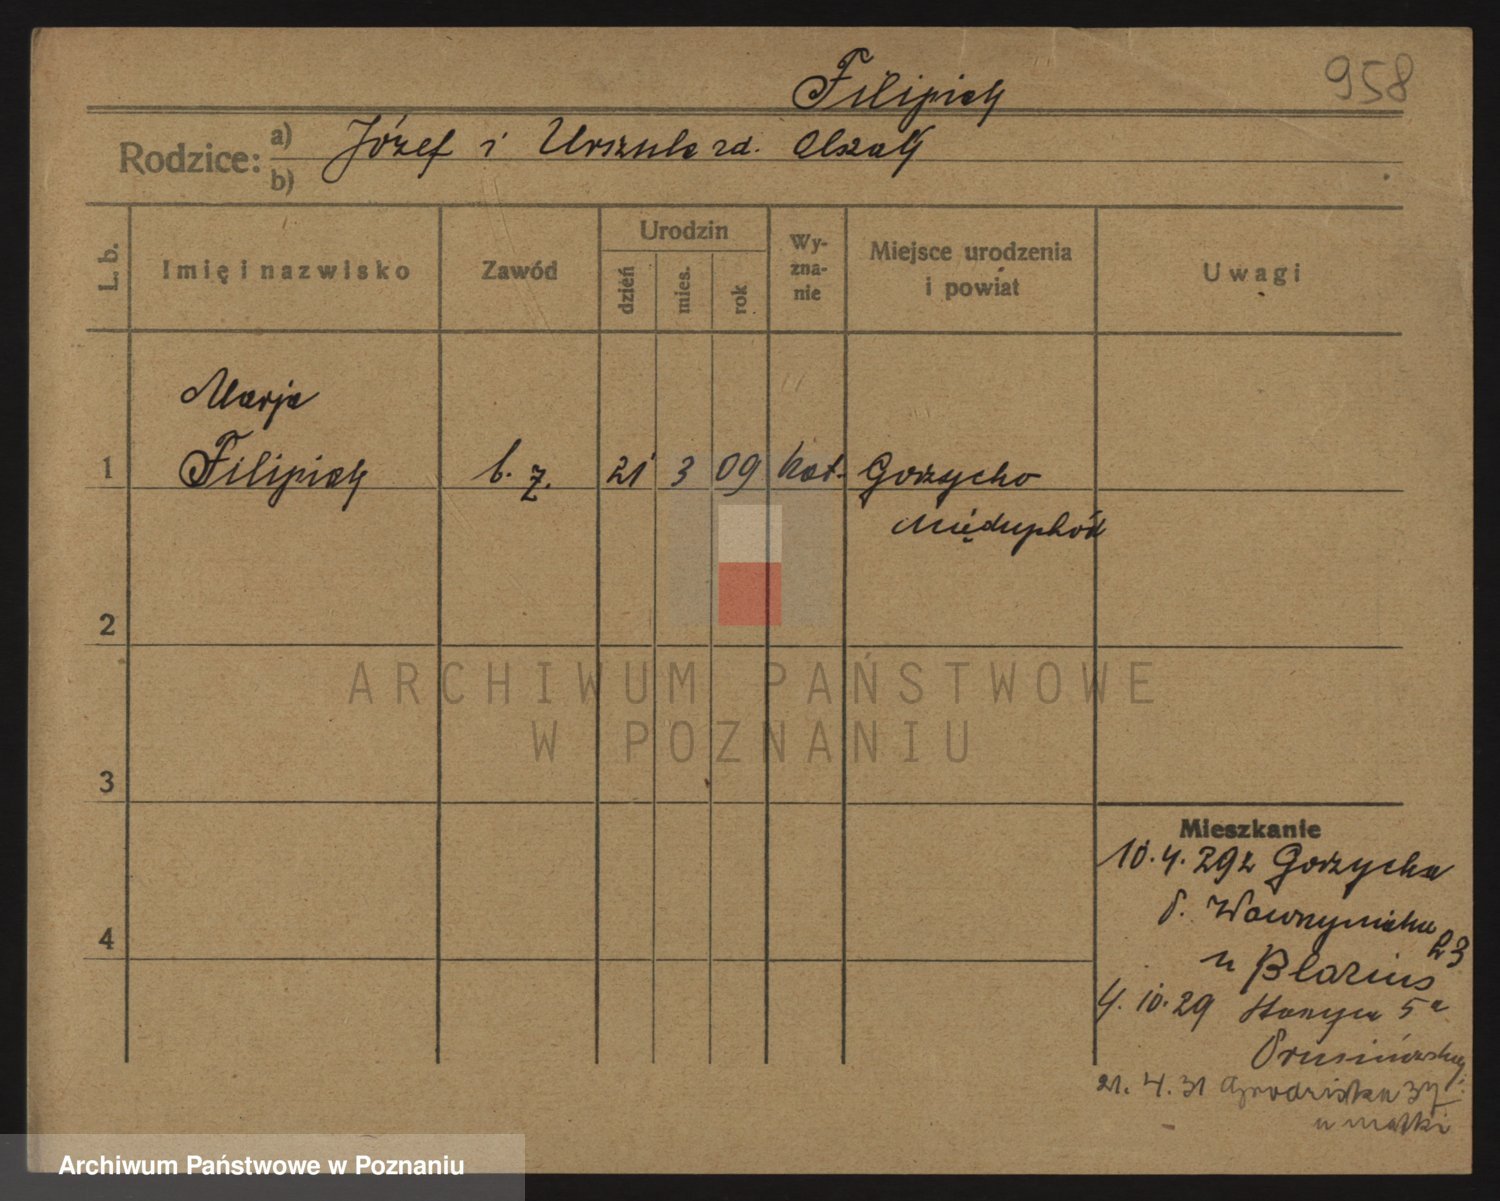 958
Filipiak
Rodzice:
a) Józef i Urszula zd.
b)
L. b.
Imię i nazwisko
Zawód
Urodzin
dzień
mies.
rok
Wy-
zna-
nie
Miejsce urodzenia
i powiat
Uwagi
Marja
1 Filipiak b. z. 21 3 09 kat. Gorzycko
Międzychód
2
3
4
Mieszkanie
10.4.29 z Gorzycka
23
u Blazius
4.10.29 5a
21.4.31 Grodziska 37
u matki
ARCHIWUM PAŃSTWOWE
W POZNANIU
Archiwum Państwowe w Poznaniu